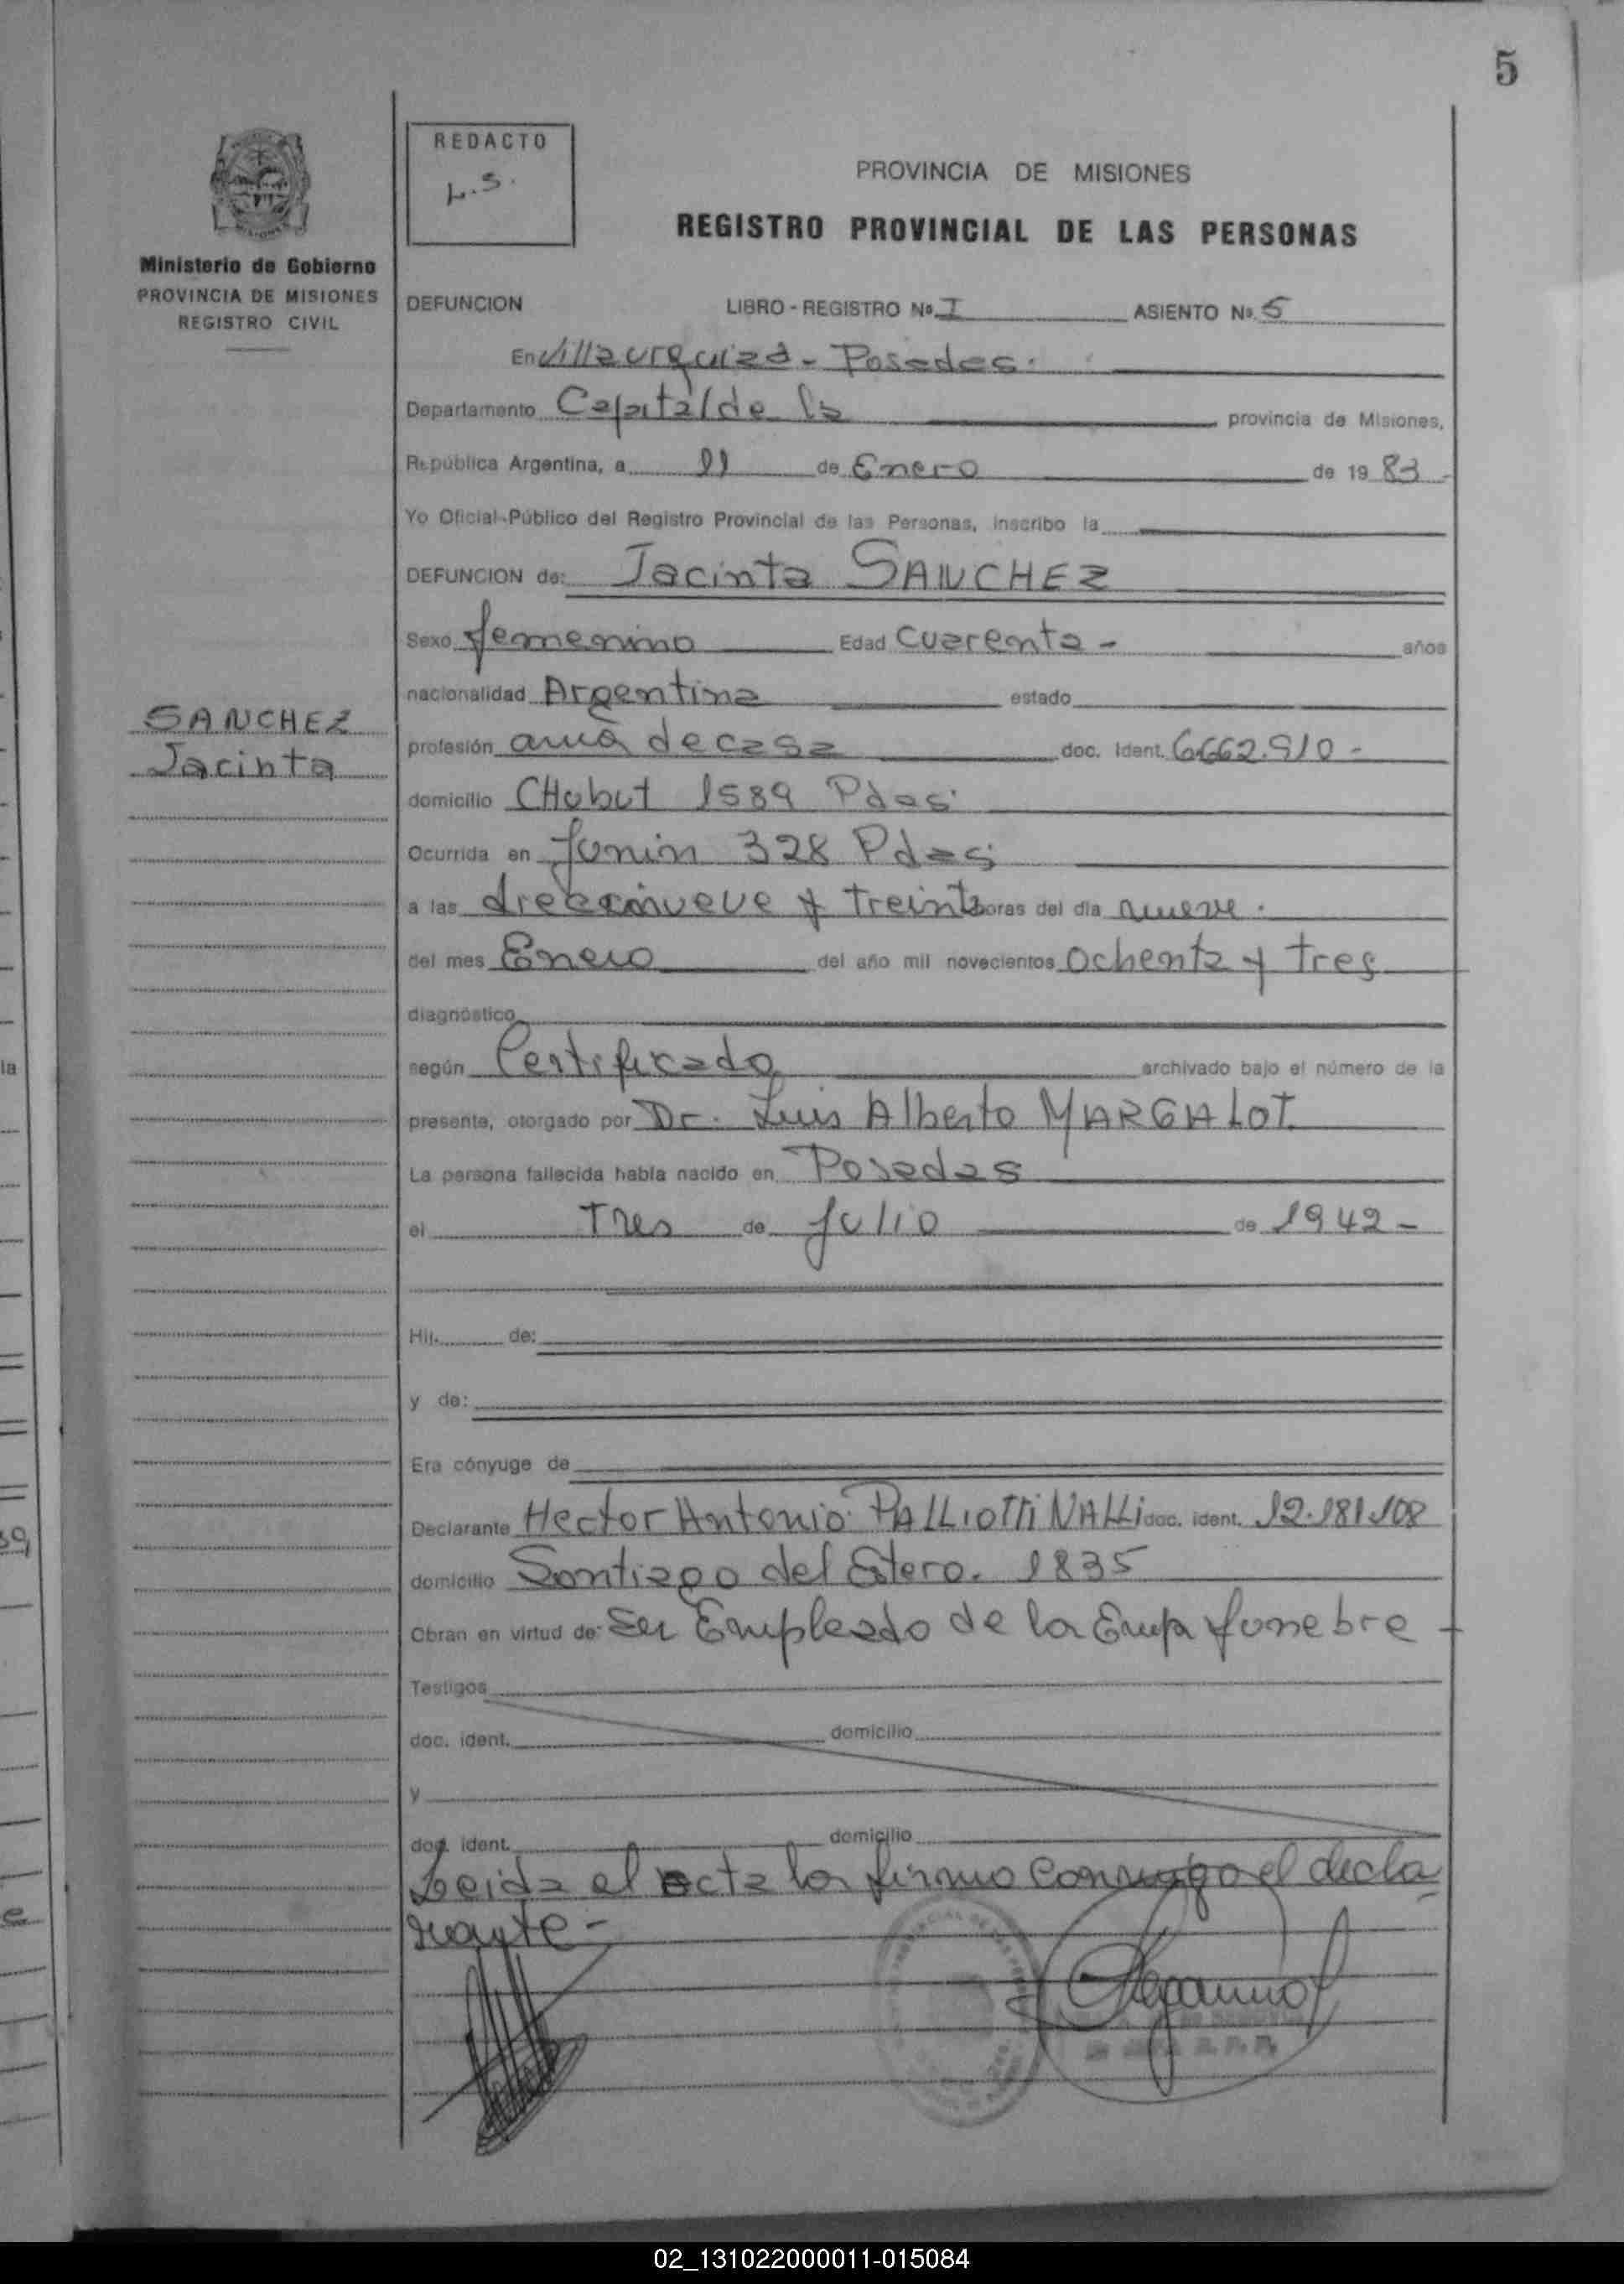 5
REDACTO
L.S.
PROVINCIA DE MISIONES
REGISTRO PROVINCIAL DE LAS PERSONAS
Ministerio de Gobierno
PROVINCIA DE MISIONES
REGISTRO CIVIL
DEFUNCION LIBRO - REGISTRO Nº I ASIENTO Nº 5
En Villa urquiza - Posadas.
Departamento Capital de la provincia de Misiones,
República Argentina, a 11 de Enero de 1983-
Yo Oficial Público del Registro Provincial de las Personas, inscribo la
DEFUNCION de: Jacinta SANCHEZ
Sexo femenino Edad cuarenta - años
nacionalidad Argentina estado
SANCHEZ
Jacinta
profesión ama de casa doc. ident. 6.662.910-
domicilio CHubut 1589 Pdas
Ocurrida en Junin 328 Pdas
a las diecinueve y treinta horas del día nueve.
del mes Enero del año mil novecientos ochenta y tres
diagnóstico
según Certificado archivado bajo el número de la
presente, otorgado por Dr. Luis Alberto MARGALOT
La persona fallecida había nacido en Posadas
el Tres de julio de 1942-
Hij. de:
y de:
Era cónyuge de
Declarante Hector Antonio PALLIOTTI NALLI doc. ident. 12.181.108
domicilio Santiago del Estero. 1835
Obran en virtud de: Ser Empleado de la Empa funebre
Testigos
doc. ident. domicilio
y
doc. ident. domicilio
Leida el acta la firma conmigo el decla
rante-
02_131022000011-015084